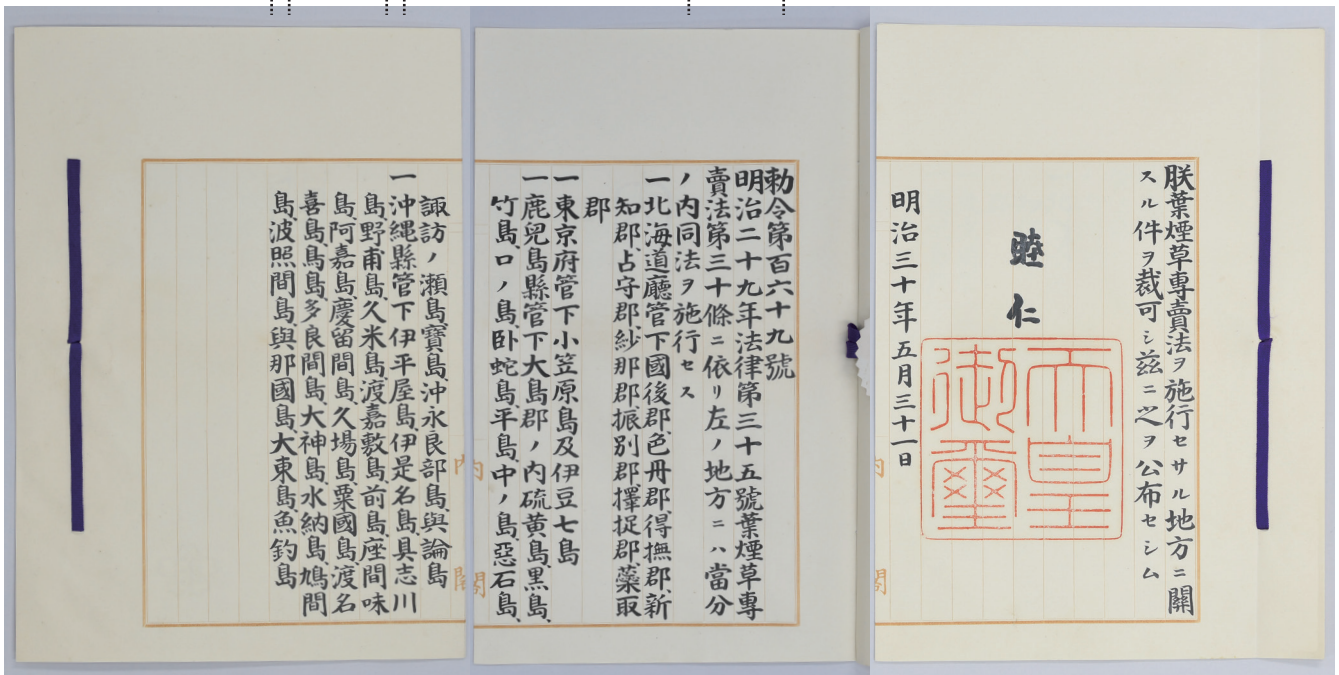 朕葉煙草專賣法ヲ施行セサル地方ニ關
スル件ヲ裁可シ玆ニ之ヲ公布セシム
睦仁
天皇
御璽
明治三十年五月三十一日
勅令第百六十九號
明治二十九年法律第三十五號葉煙草專
賣法第三十條ニ依リ左ノ地方ニハ當分
ノ内同法ヲ施行セス
一北海道廳管下國後郡、色丹郡、得撫郡、新
知郡、占守郡、紗那郡、振別郡、擇捉郡、蘂取
郡
一東京府管下小笠原島及伊豆七島
一鹿兒島縣管下大島郡ノ内硫黄島、黒島、
竹島、口ノ島、臥蛇島、平島、中ノ島、惡石島、
諏訪ノ瀬島、寶島、沖永良部島、與論島
一沖縄縣管下伊平屋島、伊是名島、具志川
島、野甫島、久米島、渡嘉敷島、前島、座間味
島、阿嘉島、慶留間島、久場島、粟國島、渡名
喜島、鳥島、多良間島、大神島、水納島、鳩間
島、波照間島、與那國島、大東島、魚釣島
内閣
内閣